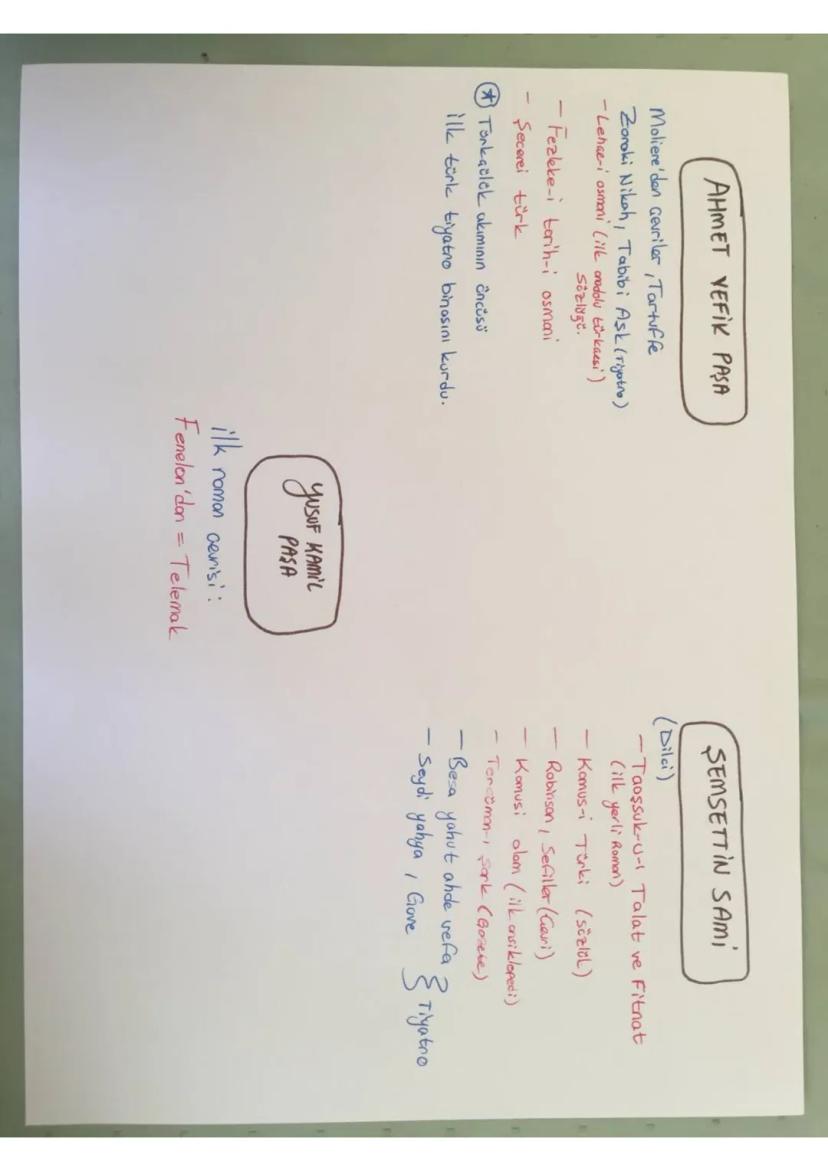 AHMET VEFİK PAŞA
Moliere'den Çevriler, Tartuffe
Zoraki Nikah, Tabibi Aşk (Tiyatro)
- Lehce-i osmani (ilk anadolu türkçesi)
sözlüğü.
- Fezleke-i tarih-i osmani
- Şecerei türk
* Türkçülük akımının öncüsü
ilk türk tiyatro binasını kurdu.
YUSUF KAMİL
PAŞA
ilk roman çevrisi:
Fenelon'dan = Telemak
ŞEMSETTİN SAMİ
(Dilci)
- Taaşşuk-u-ı Talat ve Fitnat
(ilk yerli Roman)
- Kamus-i Türki (sözlük)
- Robinson, Sefiller (Çevri)
- Kamusi alam (ilk ansiklopedi)
- Tercüman-ı Şark (Gazete)
- Besa yahut ahde vefa
- Seydi yahya, Gave } Tiyatro